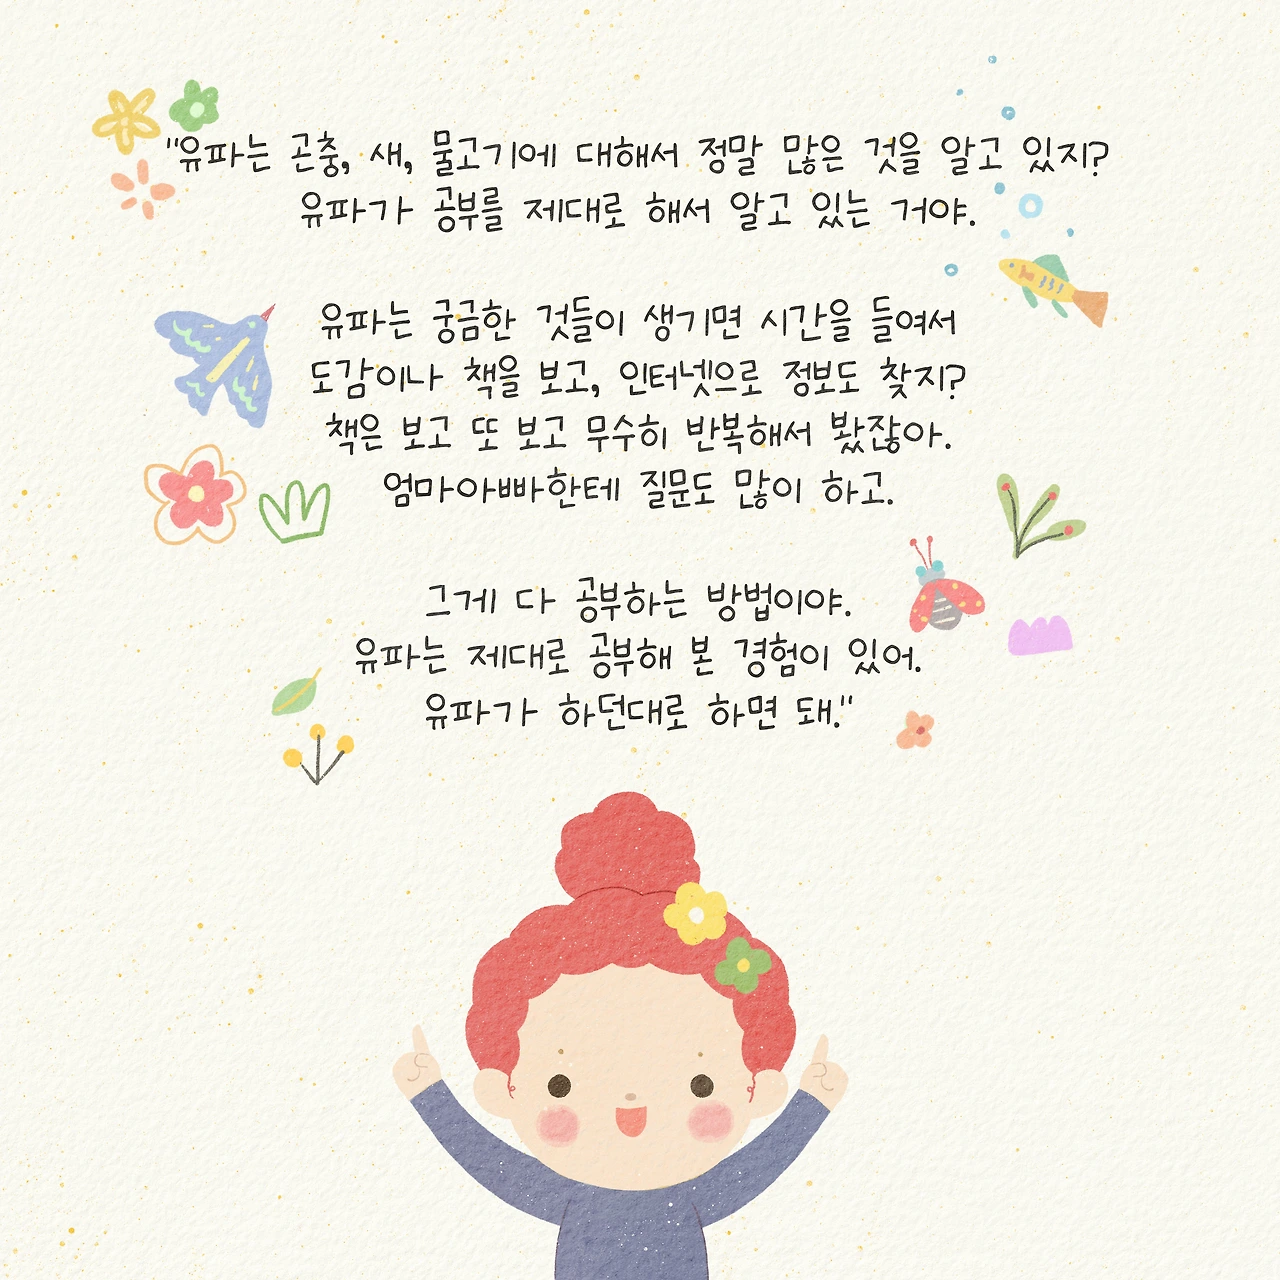 "유파는 곤충, 새, 물고기에 대해서 정말 많은 것을 알고 있지?
유파가 공부를 제대로 해서 알고 있는 거야.
유파는 궁금한 것들이 생기면 시간을 들여서
도감이나 책을 보고, 인터넷으로 정보도 찾지?
책은 보고 또 보고 무수히 반복해서 봤잖아.
엄마아빠한테 질문도 많이 하고.
그게 다 공부하는 방법이야.
유파는 제대로 공부해 본 경험이 있어.
유파가 하던대로 하면 돼."